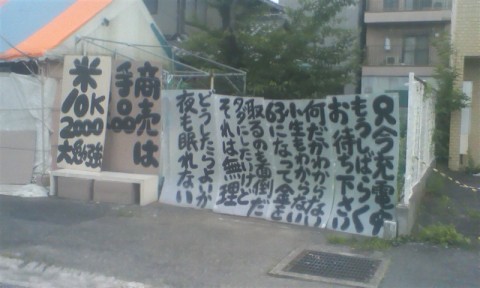 只今充電中
もうしばらく
お待ち下さい
何だかわからない
人生もわからない
63になって金を
取るのも面倒だ
タダにしたいけど
それは無理
どうしたらよいか
夜も眠れない
商売は
手品
米
10K
2000
大勉強